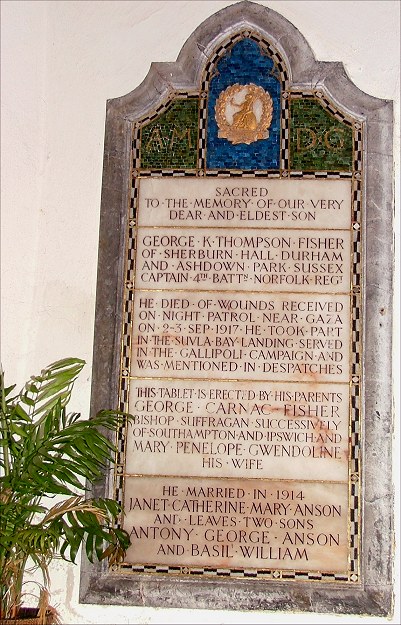 AM DG
SACRED
TO·THE·MEMORY·OF·OUR·VERY
DEAR·AND·ELDEST·SON
GEORGE·K·THOMPSON·FISHER
OF·SHERBURN·HALL·DURHAM
AND·ASHDOWN·PARK·SUSSEX
CAPTAIN·4TH·BATTN·NORFOLK·REGT
HE·DIED·OF·WOUNDS·RECEIVED
ON·NIGHT·PATROL·NEAR·GAZA
ON·2-3·SEP·1917·HE·TOOK·PART
IN·THE·SUVLA·BAY·LANDING·SERVED
IN·THE·GALLIPOLI·CAMPAIGN·AND
WAS·MENTIONED·IN·DESPATCHES
THIS·TABLET·IS·ERECTED·BY·HIS·PARENTS
GEORGE·CARNAC·FISHER
BISHOP·SUFFRAGAN·SUCCESSIVELY
OF·SOUTHAMPTON·AND·IPSWICH·AND
MARY·PENELOPE·GWENDOLINE
HIS·WIFE
HE·MARRIED·IN·1914
JANET·CATHERINE·MARY·ANSON
AND·LEAVES·TWO·SONS
ANTONY·GEORGE·ANSON
AND·BASIL·WILLIAM